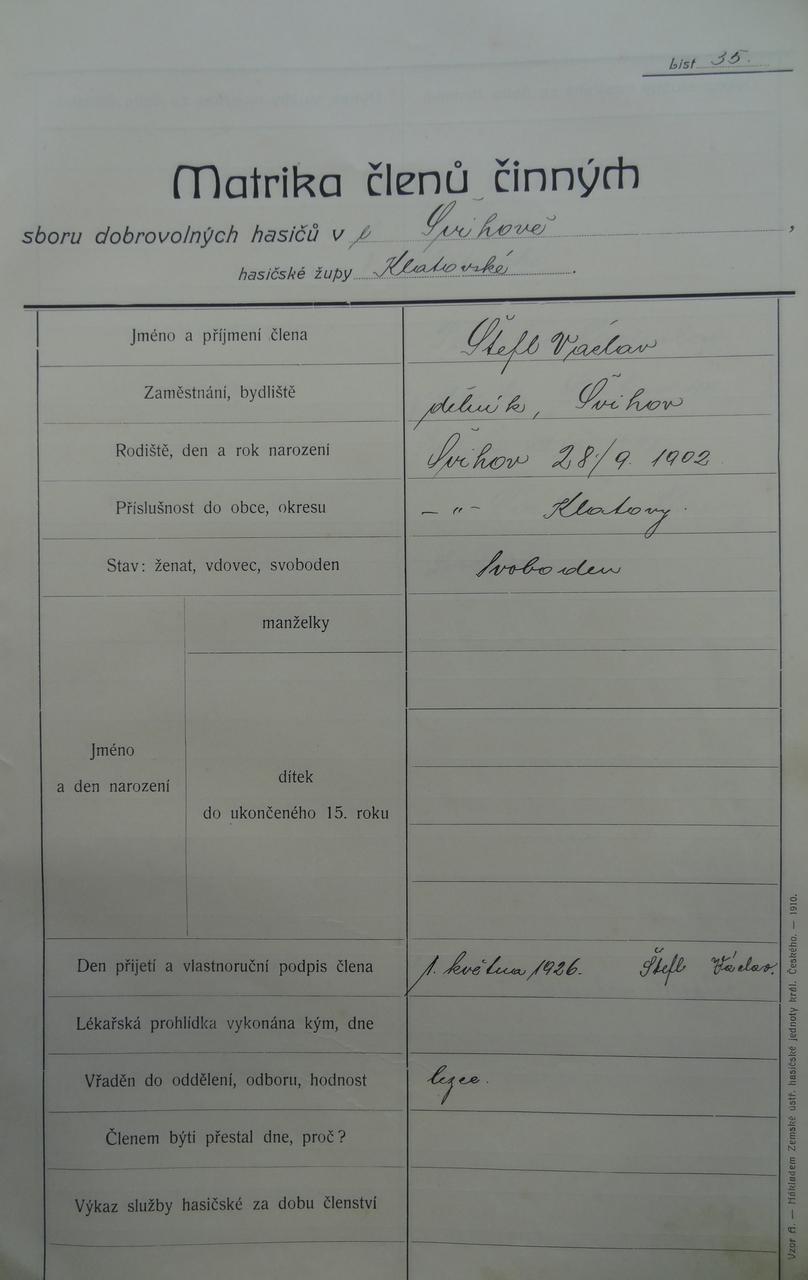 List 35.
Matrika členů činných
sboru dobrovolných hasičů v Švihově,
hasičské župy Klatovské.
Jméno a příjmení člena Štefl Václav
Zaměstnání, bydliště dělník, Švihov
Rodiště, den a rok narození Švihov 28/9. 1902
Příslušnost do obce, okresu — " — Klatovy.
Stav: ženat, vdovec, svoboden svoboden
manželky
Jméno
a den narození
dítek
do ukončeného 15. roku
Den přijetí a vlastnoruční podpis člena 1. května 1926. Štefl Václav.
Lékařská prohlídka vykonána kým, dne
Vřaděn do oddělení, odboru, hodnost lezec.
Členem býti přestal dne, proč?
Výkaz služby hasičské za dobu členství
Vzor A. — Nákladem Zemské ústř. hasičské jednoty král. Českého. — 1910.